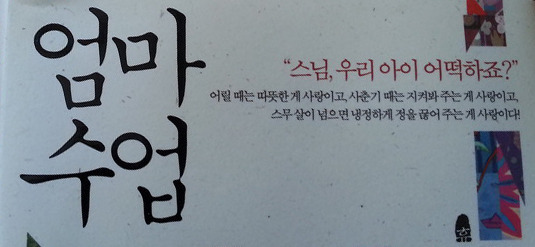 엄마
수업
“스님, 우리 아이 어떡하죠?”
어릴 때는 따뜻한 게 사랑이고, 사춘기 때는 지켜봐 주는 게 사랑이고,
스무 살이 넘으면 냉정하게 정을 끊어 주는 게 사랑이다!
휴